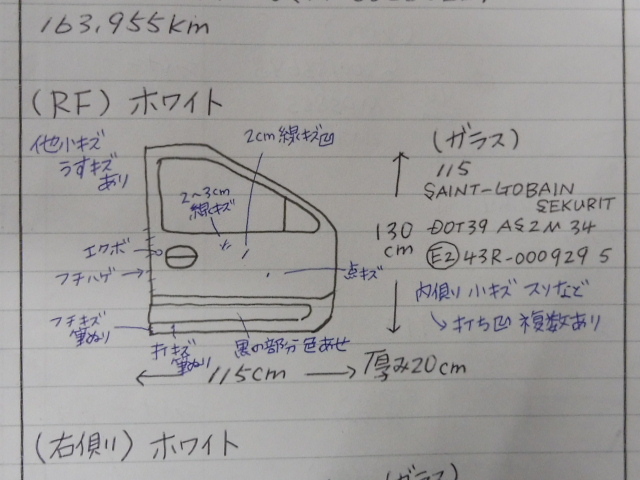 163,955km
(RF) ホワイト
他小キズ
うすキズ
あり
2cm線キズ凹
2~3cm
線キズ
エクボ
フチハゲ
点キズ
フチキズ
筆ぬり
打キズ
筆ぬり
黒の部分色あせ
115cm
厚み20cm
130
cm
(ガラス)
115
SAINT-GOBAIN
SEKURIT
DOT39 AS2M 34
E2 43R-000929 5
内側小キズ スリなど
→打ち凹 複数あり
(右側) ホワイト
(ガラス)